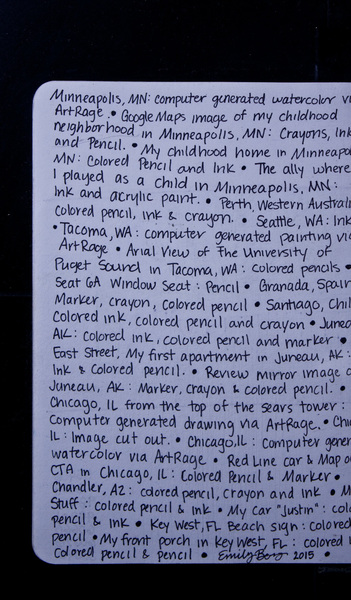 Minneapolis, MN: computer generated watercolor vi
ArtRage. • Google Maps image of my childhood
neighborhood in Minneapolis, MN: Crayons, Ink
and Pencil. • My childhood home in Minneapo
MN: Colored Pencil and Ink • The ally where
I played as a Child in Minneapolis, MN:
Ink and acrylic paint. • Perth, Western Austral
Colored pencil, ink & crayon. • Seattle, WA: Ink
• Tacoma, WA: computer generated painting via
ArtRage • Arial View of The University of
Puget Sound in Tacoma, WA: colored pencils •
Seat 6A Window Seat: Pencil • Granada, Spain
Marker, crayon, colored pencil • Santiago, Chil
Colored ink, colored pencil and crayon • June
AK: colored ink, colored pencil and marker •
East Street, My first apartment in Juneau, AK:
Ink & Colored pencil. • Review mirror image o
Juneau, AK: Marker, crayon & colored pencil. •
Chicago, IL from the top of the Sears tower:
Computer generated drawing via ArtRage. • Chi
IL: Image cut out. • Chicago, IL: Computer gener
watercolor via ArtRage • Red Line car & Map o
CTA in Chicago, IL: Colored Pencil & Marker •
Chandler, AZ: colored pencil, crayon and ink • M
Stuff: colored pencil & ink • My car "Justin": col
pencil & ink • Key West, FL Beach sign: colored
pencil • My front porch in Key West, FL: colored i
Colored pencil & pencil • Emily Berg 2015 •